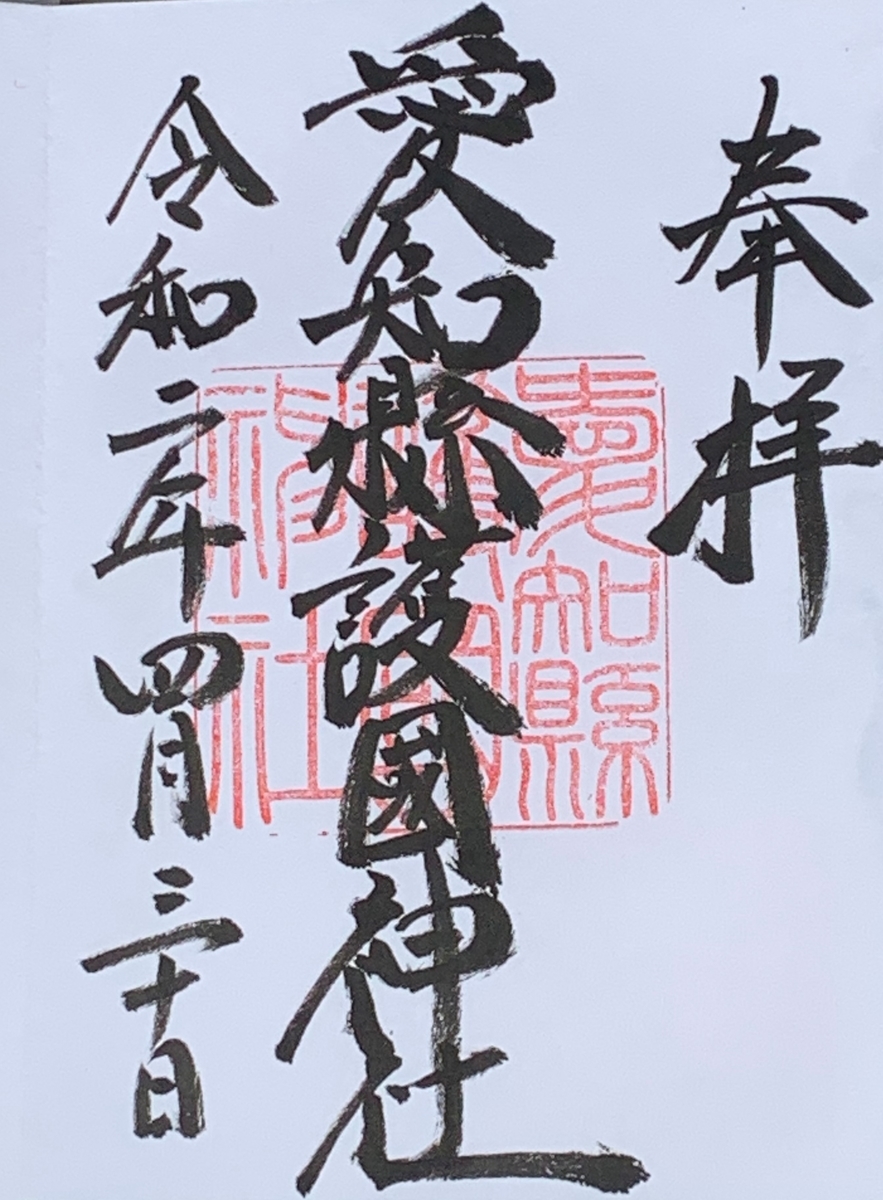 奉拝
愛知縣護國神社
愛知縣護國神社
令和二年四月三十日